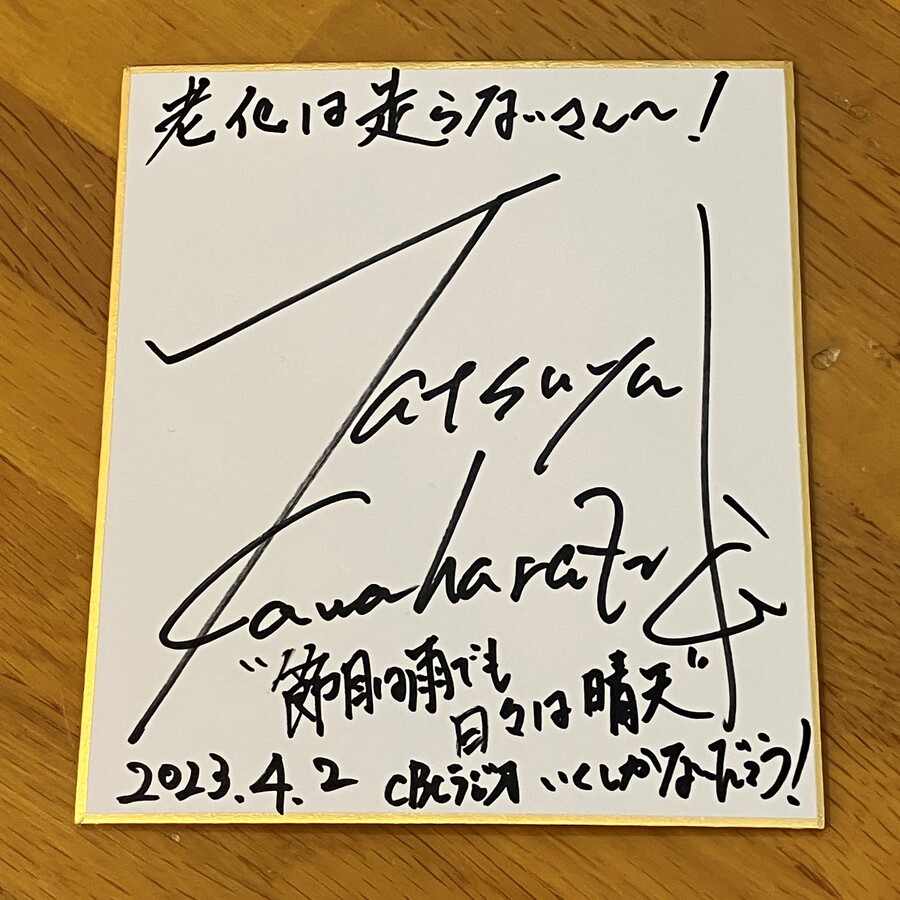 老化は走らないさん〜!
Tatsuya
Kawahara
"節目は雨でも
日々は晴天"
2023.4.2 CBCラジオ いくしかないだろう!